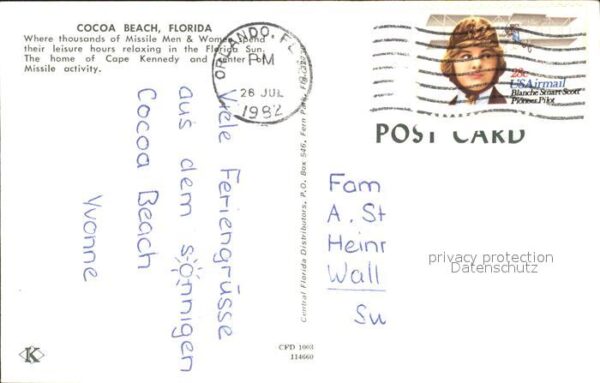 COCOA BEACH, FLORIDA
Where thousands of Missile Men & Women spend
their leisure hours relaxing in the Florida Sun.
The home of Cape Kennedy and Center of
Missile activity.
ORLANDO, FL
PM
28 JUL
1982
28c
USAirmail
Blanche Stuart Scott
Pioneer Pilot
POST CARD
Viele Feriengrüsse
aus dem sonnigen
Cocoa Beach
Yvonne
Central Florida Distributors, P.O. Box 546, Fern Park, Florida
Fam
A. St
Heinr
Wall
Su
privacy protection
Datenschutz
K
CFD 1003
114660